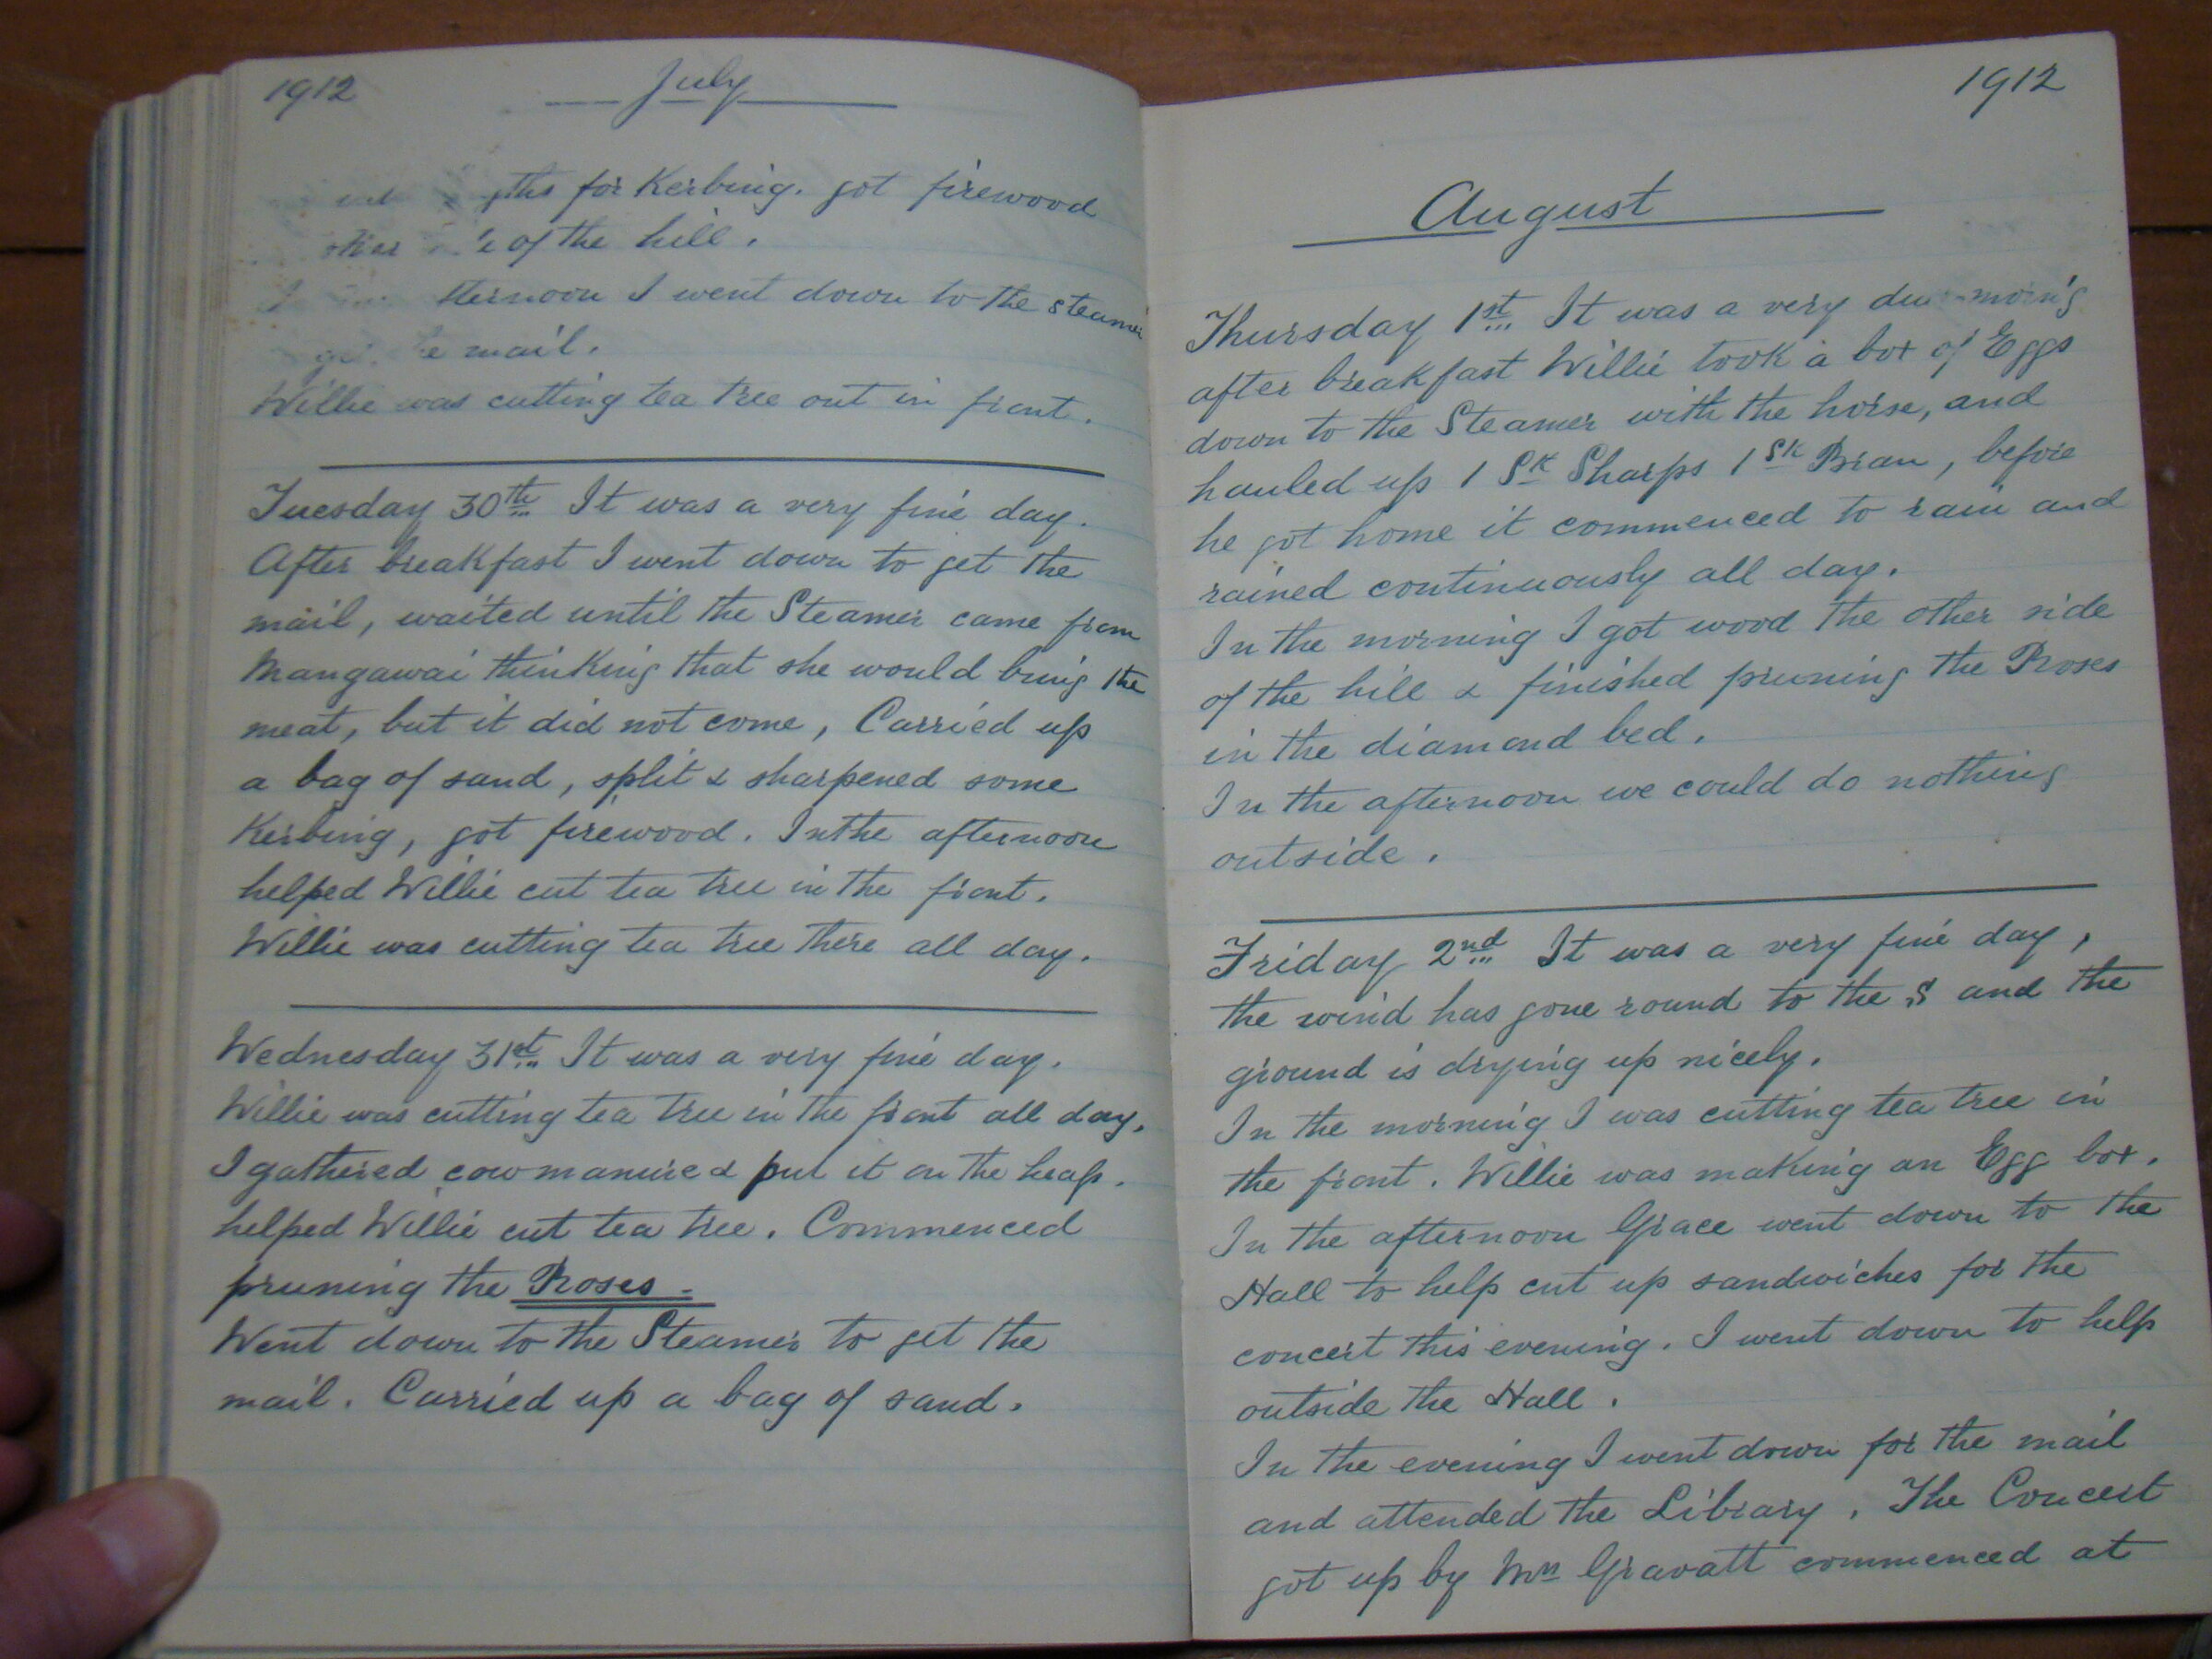 1912 July
for Kerbing. got firewood
of the hill.
I went down to the steamer
mail.
Willie was cutting tea tree out in front.
Tuesday 30th It was a very fine day.
After breakfast I went down to get the
mail, waited until the Steamer came from
Mangawai thinking that she would bring the
meat, but it did not come, Carried up
a bag of sand, split & sharpened some
Kerbing, got firewood. In the afternoon
helped Willie cut tea tree in the front.
Willie was cutting tea tree there all day.
Wednesday 31st It was a very fine day.
Willie was cutting tea tree in the front all day,
I gathered cow manure & put it on the heap.
helped Willie cut tea tree. Commenced
pruning the Roses -
Went down to the Steamer to get the
mail. Carried up a bag of sand.
1912
August
Thursday 1st It was a very morn'g
after breakfast Willie took a box of Eggs
down to the Steamer with the horse, and
hauled up 1 Sk Sharps 1 Sk Bran, before
he got home it commenced to rain and
rained continuously all day.
In the morning I got wood the other side
of the hill & finished pruning the Roses
in the diamond bed.
In the afternoon we could do nothing
outside.
Friday 2nd It was a very fine day,
the wind has gone round to the S and the
ground is drying up nicely.
In the morning I was cutting tea tree in
the front. Willie was making an Egg box.
In the afternoon Grace went down to the
Hall to help cut up sandwiches for the
concert this evening. I went down to help
outside the Hall.
In the evening I went down for the mail
and attended the Library. The Concert
got up by Mrs Gravatt commenced at